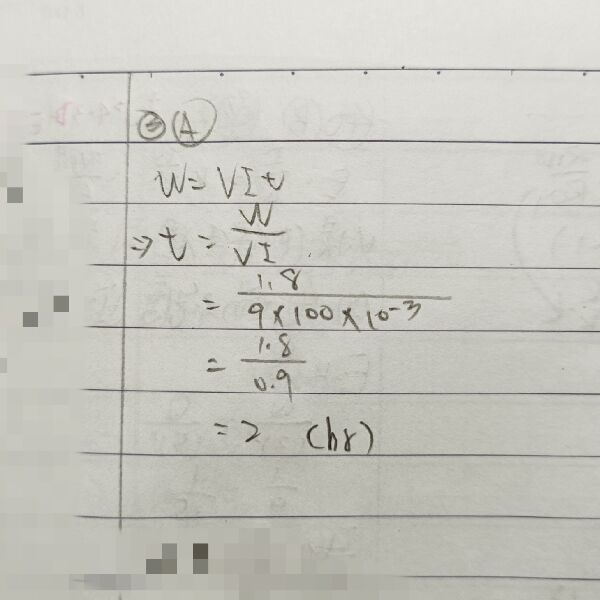 ③ A
W = VIt
⇒ t = W/VI
= 1.8/9×100×10-3
= 1.8/0.9
= 2 (hr)